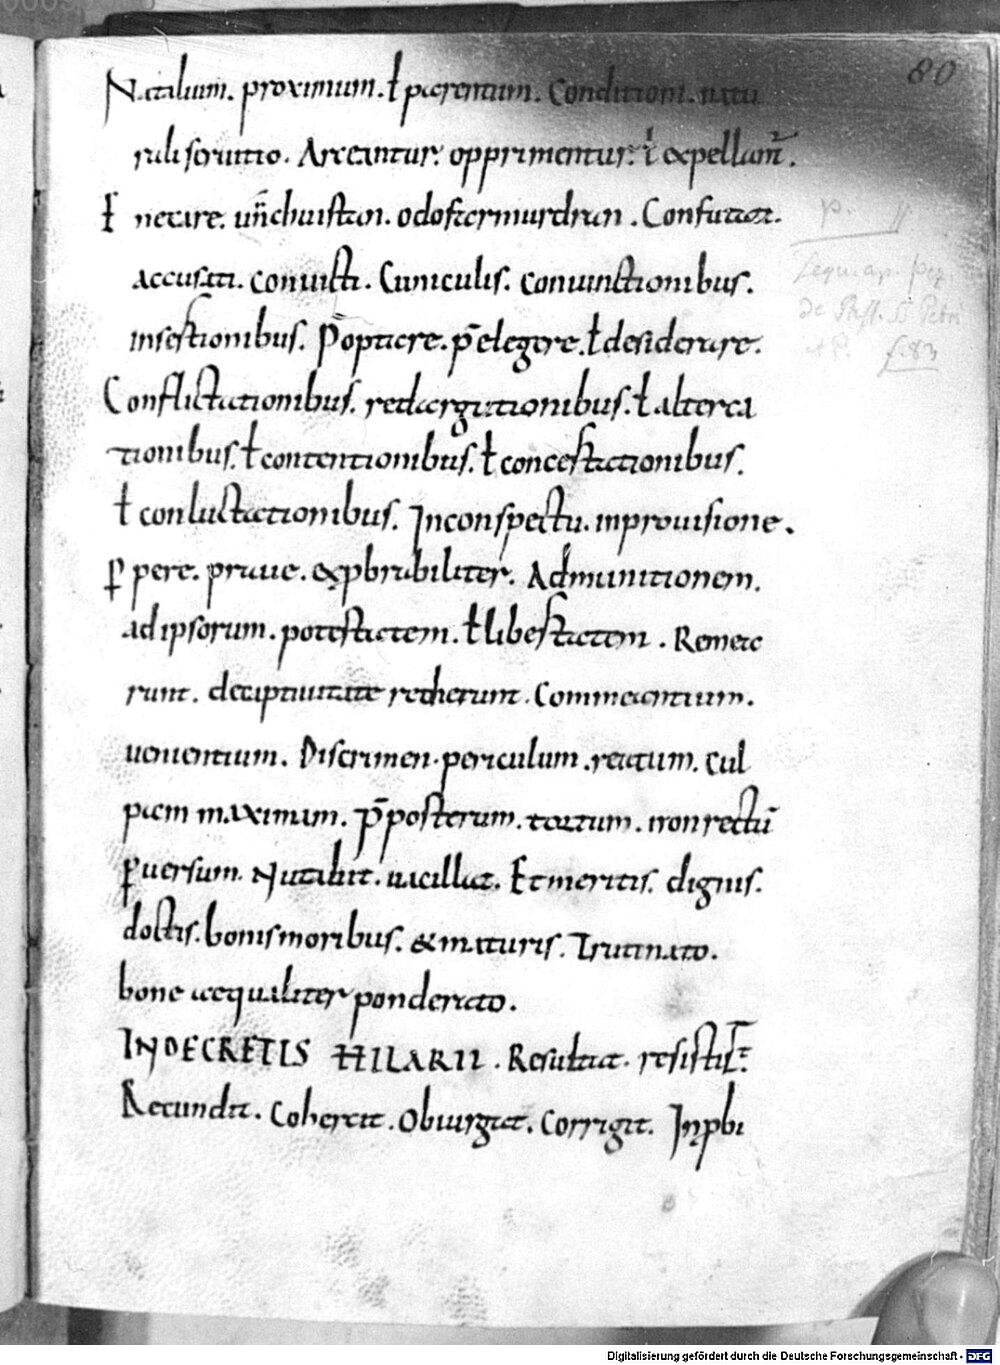 80
Natalium. proximum. ł parentum. Conditioni. natu
rali seruitio. Arceantur. opprimentur. ł expellant̄.
ł necare. odofarmurdran. Confutat.
accusati. conuicti. Cuniculis. conuinctionibus.
insectionibus. P̄optare. p̄elegere. ł desiderare.
Conflictationibus. redargutionibus. ł alterca
tionibus. ł contentionibus. ł concestationibus.
ł conluctationibus. Inconspectu. inprouisione.
ꝑpere. praue. exprobrabiliter. Admunitionem.
ad ipsorum. potestatem. ł libestatem. Remea
runt. decaptiuitate redierunt. Commeantium.
uenientium. Discrimen. periculum. reatum. cul
pam maximam. P̄posterum. tortum. non rectū
ꝑuersum. Nutabit. uacillat. Et meritis. dignis.
doctis. bonis moribus. & maturis. Trutinato.
bone aequaliter ponderato.
INDECRETIS HILARII. Resultat. resistit.
Retundit. Cohercet. Obiurgat. Corrigit. Inpbi
p. 11
Sequ. ap. Pez.
de Pass. SS Petri
et P. f. 83
Digitalisierung gefördert durch die Deutsche Forschungsgemeinschaft - DFG